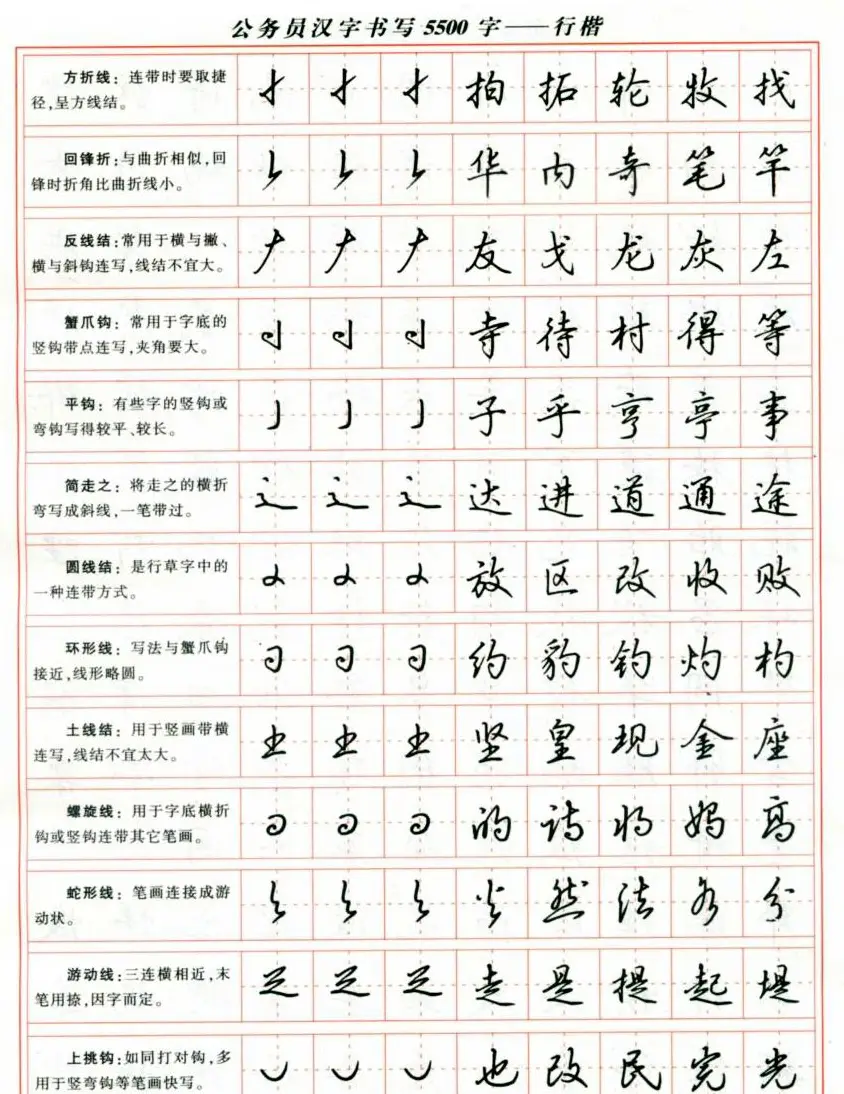 公务员汉字书写5500字——行楷
方折线：连带时要取捷
径,呈方线结。
拍 拓 轮 牧 找
回锋折:与曲折相似,回
锋时折角比曲折线小。
华 内 奇 笔 竿
反线结:常用于横与撇、
横与斜钩连写,线结不宜大。
友 戈 龙 灰 左
蟹爪钩：常用于字底的
竖钩带点连写,夹角要大。
寺 待 村 得 等
平钩：有些字的竖钩或
弯钩写得较平、较长。
子 乎 亨 亭 事
简走之：将走之的横折
弯写成斜线,一笔带过。
达 进 道 通 途
圆线结：是行草字中的
一种连带方式。
放 区 改 收 败
环形线：写法与蟹爪钩
接近,线形略圆。
约 豹 钓 灼 杓
土线结：用于竖画带横
连写,线结不宜太大。
坚 皇 现 金 座
螺旋线：用于字底横折
钩或竖钩连带其它笔画。
的 将 妈 高
蛇形线：笔画连接成游
动状。
火 然 法 务 分
游动线:三连横相近,末
笔用捺,因字而定。
走 是 提 起 堤
上挑钩:如同打对钩,多
用于竖弯钩等笔画快写。
也 改 民 完 光